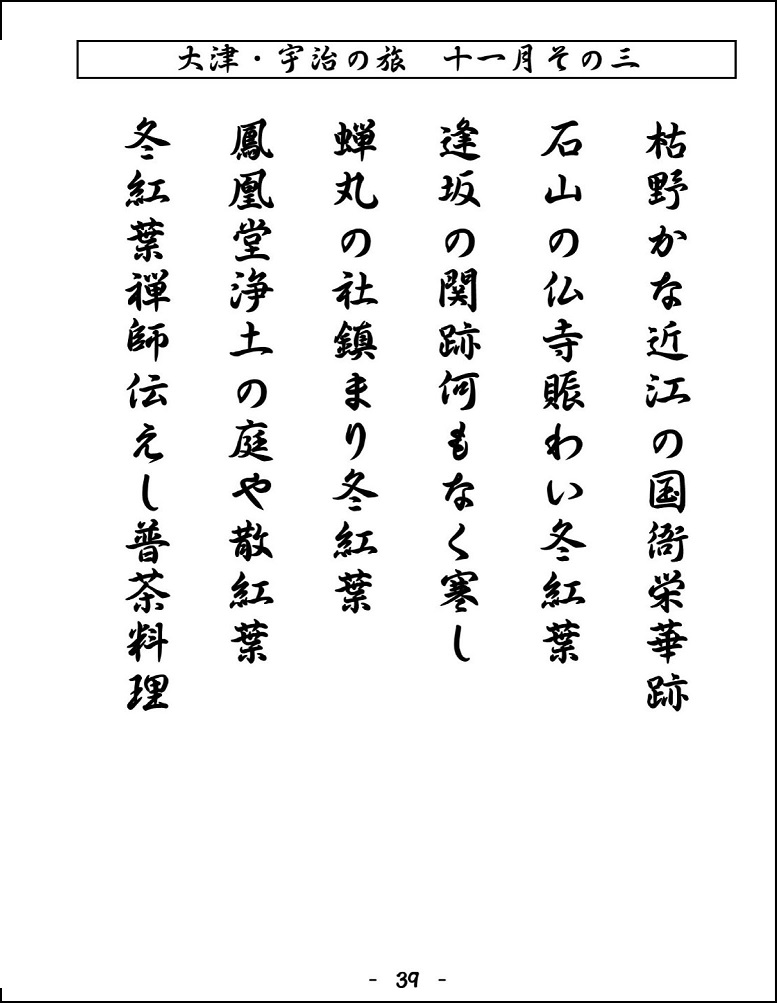 大津・宇治の旅　十一月その三
枯野かな近江の国衙栄華跡
石山の仏寺賑わい冬紅葉
逢坂の関跡何もなく寒し
蝉丸の社鎮まり冬紅葉
鳳凰堂浄土の庭や散紅葉
冬紅葉禅師伝えし普茶料理
- 39 -